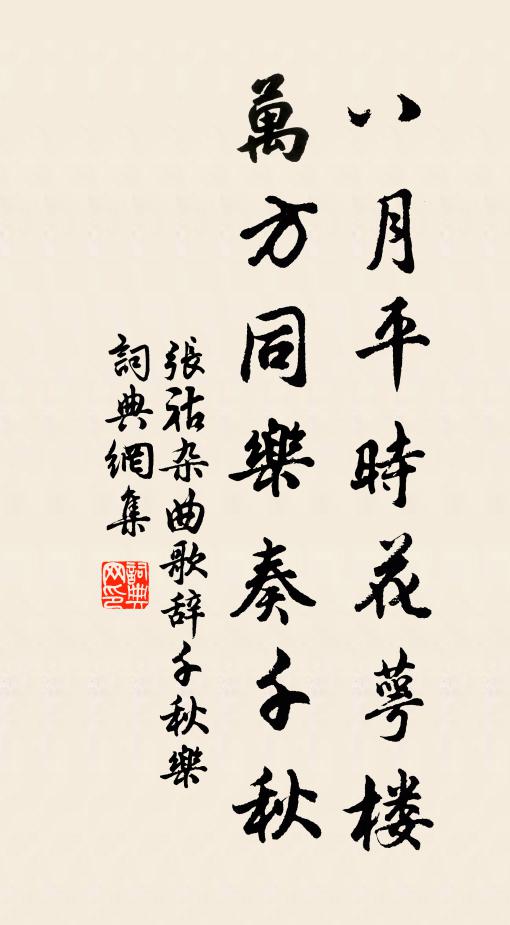 八月平時花萼楼
萬方同樂奏千秋
張祜杂曲歌辞千秋樂
詞典網集
詞典网印